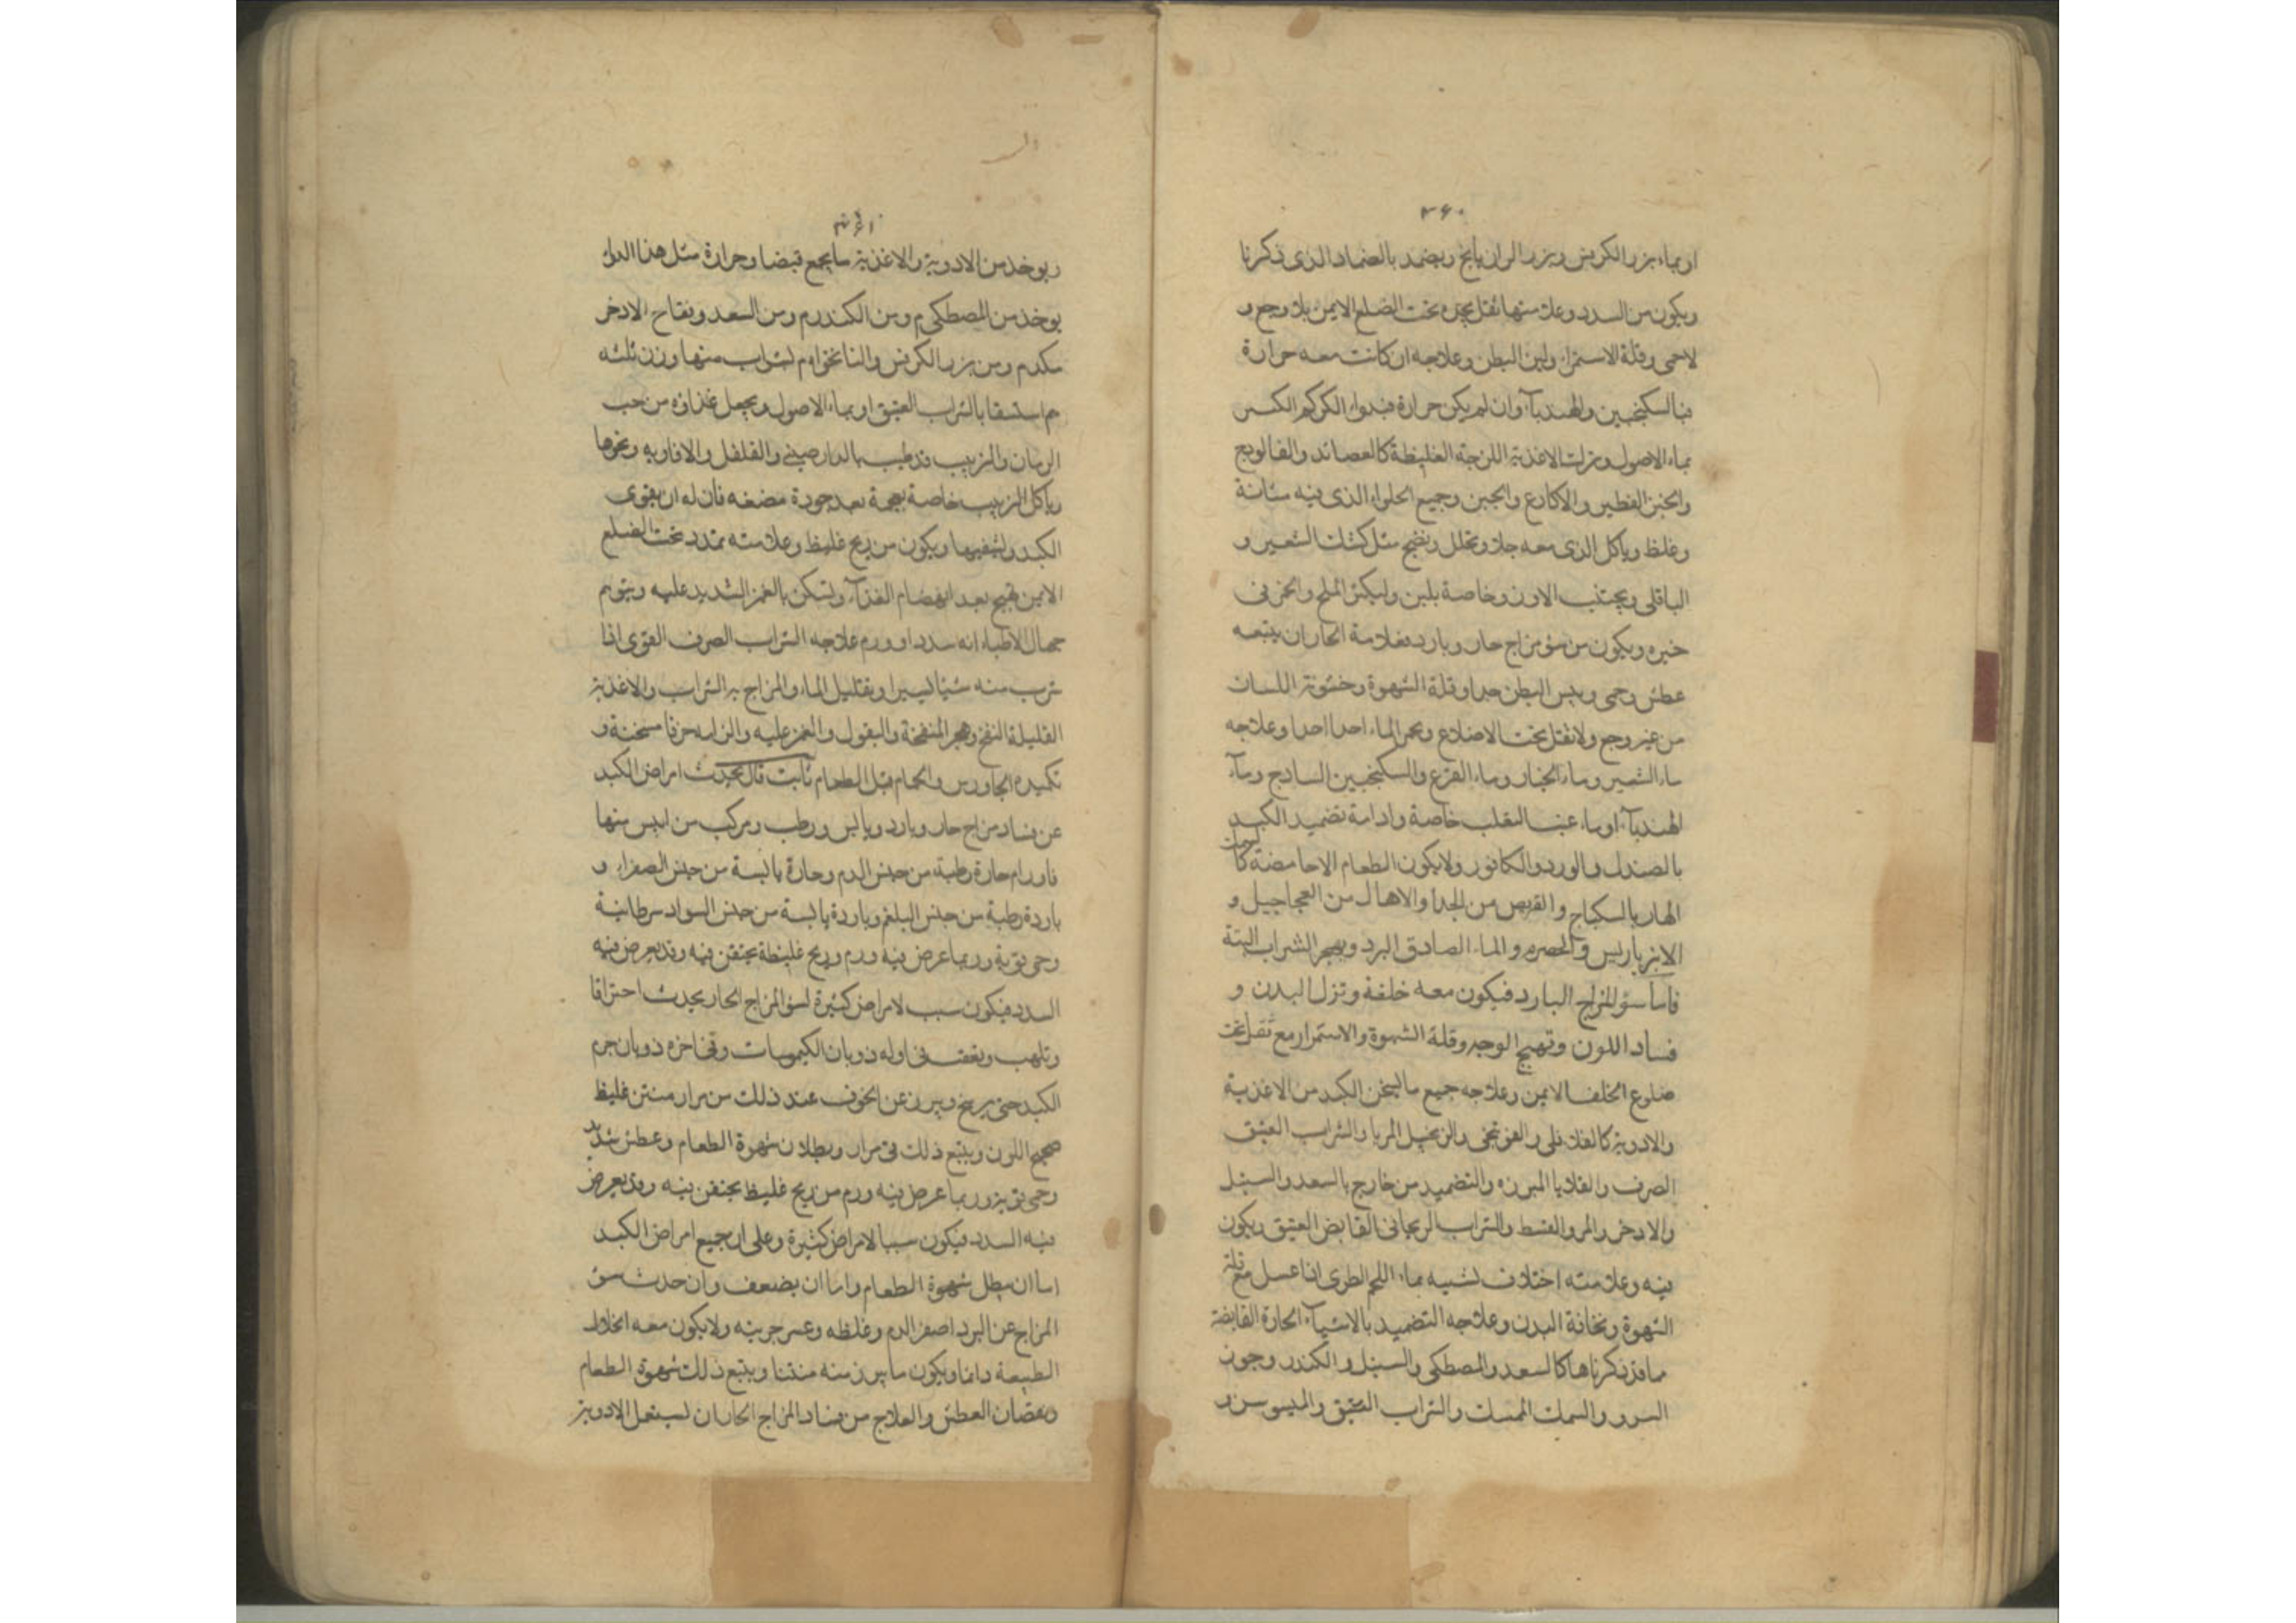 ٣٦٠
او بماء بزر الكرفس وبزر الرازيانج ويضمد بالضماد الذى ذكرنا
ويكون من السدد وعلامتها ثقل يجده تحت الضلع الايمن بلا وجع و
لاحمى وقلة الاستمراء ولين البطن وعلاجه ان كانت معه حرارة
فبالسكنجبين والهندبآء وان لم يكن حرارة فبدواء الكركم الكبير
بماء الاصول وترك الاغذية اللزجة الغليظة كالعصائد والفالوذج
والخبز الفطير والاكارع والجبن وجميع الحلواء الذى فيه متانة
وغلظ وياكل الذى معه جلاء وتحلل ونضج مثل كشك الشعير و
الباقلى ويجتنب الارز وخاصة بلبن وليكثر الملح والخز فى
خبزه ويكون من سؤ مزاج حار وبارد فعلامة الحار ان يتبعه
عطش وحمى ويبس البطن جدا وقلة الشهوة وخشونة اللسان
من غير وجع ولا ثقل تحت الاضلاع ويحمر الماء احدا احدا وعلاجه
ماء الشعير وماء الخيار وماء القرع والسكنجبين الساذج ومآء
الهندبآء او ماء عنب الثعلب خاصة وادامة تضميد الكبد
بالصندل والورد والكافور ولايكون الطعام الا حامضة كا
لسمك
الهاربا السكباج والقريص من الجدا والاهال من العجاجيل و
الانبرباريس والحصرم والماء الصادق البرد ويهجر الشراب البتة
فأما سؤ المزاج البارد فيكون معه خلفة وتزل البدن و
فساد اللون وتهيج الوجه وقلة الشهوة والاستمرار مع ثقل تحت
ضلوع الخلف الايمن وعلاجه جميع ما يسخن الكبد من الاغذية
والادوية كالفلافلى والفوتنجى والزنجبيل المربا والشراب العتيق
الصرف والقلايا المبزره والتضميد من خارج بالسعد والسنبل
والاذخر والمر والقسط والشراب الريحانى القابض العتيق ويكون
فيه وعلامته اختلاف شبيه بماء اللحم الطرى اذا غسل مع قلة
الشهوة ونحافة البدن وعلاجه التضميد بالاشيآء الحارة القابضة
مما قد ذكرناها كالسعد والمصطكى والسنبل والكندر وجوز
السرو والسك الممسك والشراب العتيق والميسوسن و
٣٦١
ويوخذ من الادوية والاغذية ما يجمع قبضا وحرارة مثل هذا الدواء
يوخذ من المصطكى م ومن الكندر م ومن السعد وفقاح الاذخر
مكدم ومن بزر الكرفس والنانخواه م لشراب منها وزن ثلثه
م استسقا بالشراب العتيق او بماء الاصول ويجعل غذاؤه من حب
الرمان والزبيب قد طيب بالدارصينى والفلفل والافاويه ونحوها
وياكل الزبيب خاصة بعجمه بعد جودة مضغه فان له ان يقوى
الكبد ويشفيها ويكون من ريح غليظ وعلامته تمدد تحت الضلع
الايمن يهيج بعد انهضام الغذآء ويسكن بالغمز الشديد عليه ويتوهم
جهال الاطباء انه سدد او ورم علاجه الشراب الصرف القوى اذا
شرب منه شيأ يسيرا وبقليل الماء والمزاج به الشراب والاغذية
القليلة النفخ وهجر المنفخة والبقول والغمز عليه والزامه خرقا مسخنة و
تكميده الجاورس والحمام قبل الطعام ثابت قال يحدث امراض الكبد
عن فساد مزاج حار وبارد ويابس ورطب ومركب من اثنين منها
فاورام حارة رطبة من جنس الدم وحارة يابسة من جنس الصفراء و
باردة رطبة من جنس البلغم وباردة يابسة من جنس السواد سرطانية
وحمى قوية وربما عرض فيه ورم وريح غليظة يحتقن فيه وقد يعرض فيه
السدد فيكون سبب لامراض كثيرة لسؤ المزاج الحار يحدث احتراقا
وتلهب وبعقب فى اوله ذوبان الكيموسات وفى اخره ذوبان جرم
الكبد حتى يريخ ويبرز عن الجوف عند ذلك من مرار منتن غليظ
صحيح اللون ويتبع ذلك قى مرار وبطلان شهوة الطعام وعطش شديد
وحمى قوية وربما عرض فيه ورم من ريح غليظ يحتقن فيه وقد يعرض
فيه السدد فيكون سببا لامراض كثيرة وعلى ان جميع امراض الكبد
اما ان يبطل شهوة الطعام واما ان يضعف وان حدث سؤ
المزاج عن البرد اصفر الدم وغلظه وعسر جريته ولايكون معه انحلال
الطبيعة دائما ويكون ما يبرز منه منتنا ويتبع ذلك شهوة الطعام
ونقصان العطش والعلاج من فساد المزاج الحار ان يستعمل الادوية